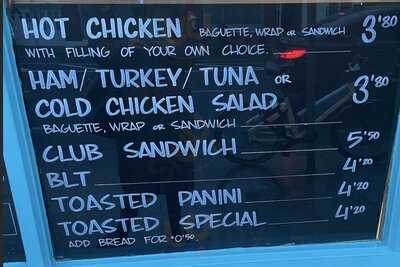 HOT CHICKEN BAGUETTE, WRAP OR SANDWICH 3'80
WITH FILLING OF YOUR OWN CHOICE.
HAM/TURKEY/TUNA OR
COLD CHICKEN SALAD 3'80
BAGUETTE, WRAP OR SANDWICH
CLUB SANDWICH 5'50
BLT 4'20
TOASTED PANINI 4'20
TOASTED SPECIAL 4'20
ADD BREAD FOR '0'50.